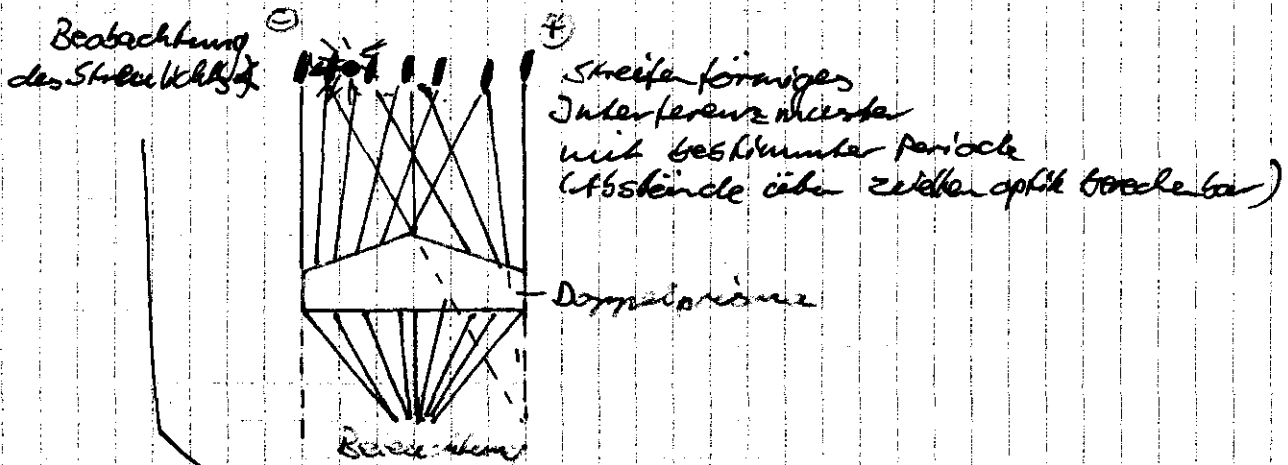 Beobachtung
des Streulichts
⊖
⊕
Streifenförmiges
Interferenzmuster
mit bestimmter Periode
(Abstände über Wellenoptik berechenbar)
Doppelprisma